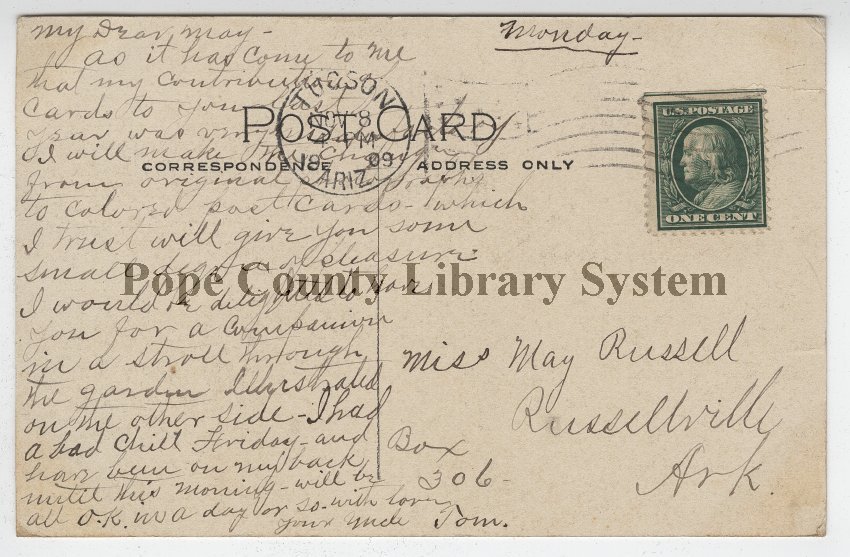 Monday-
My Dear May-
as it has come to me
that my contribution
cards to you last
year was very
I will make the change
from original photographs
to colored post cards - which
I trust will give you some
small degree of pleasure.
I would be delighted to have
you for a companion
in a stroll through
the garden Illustrated
on the other side - I had
a bad chill Friday - and
have been on my back
until this morning - will be
all O.K. in a day or so - with love
your Uncle Tom.
TUCSON
8
PM
1909
ARIZ.
POST CARD
CORRESPONDENCE
ADDRESS ONLY
U.S. POSTAGE
ONE CENT
Pope County Library System
Miss May Russell
Russellville
Box
306-
Ark.